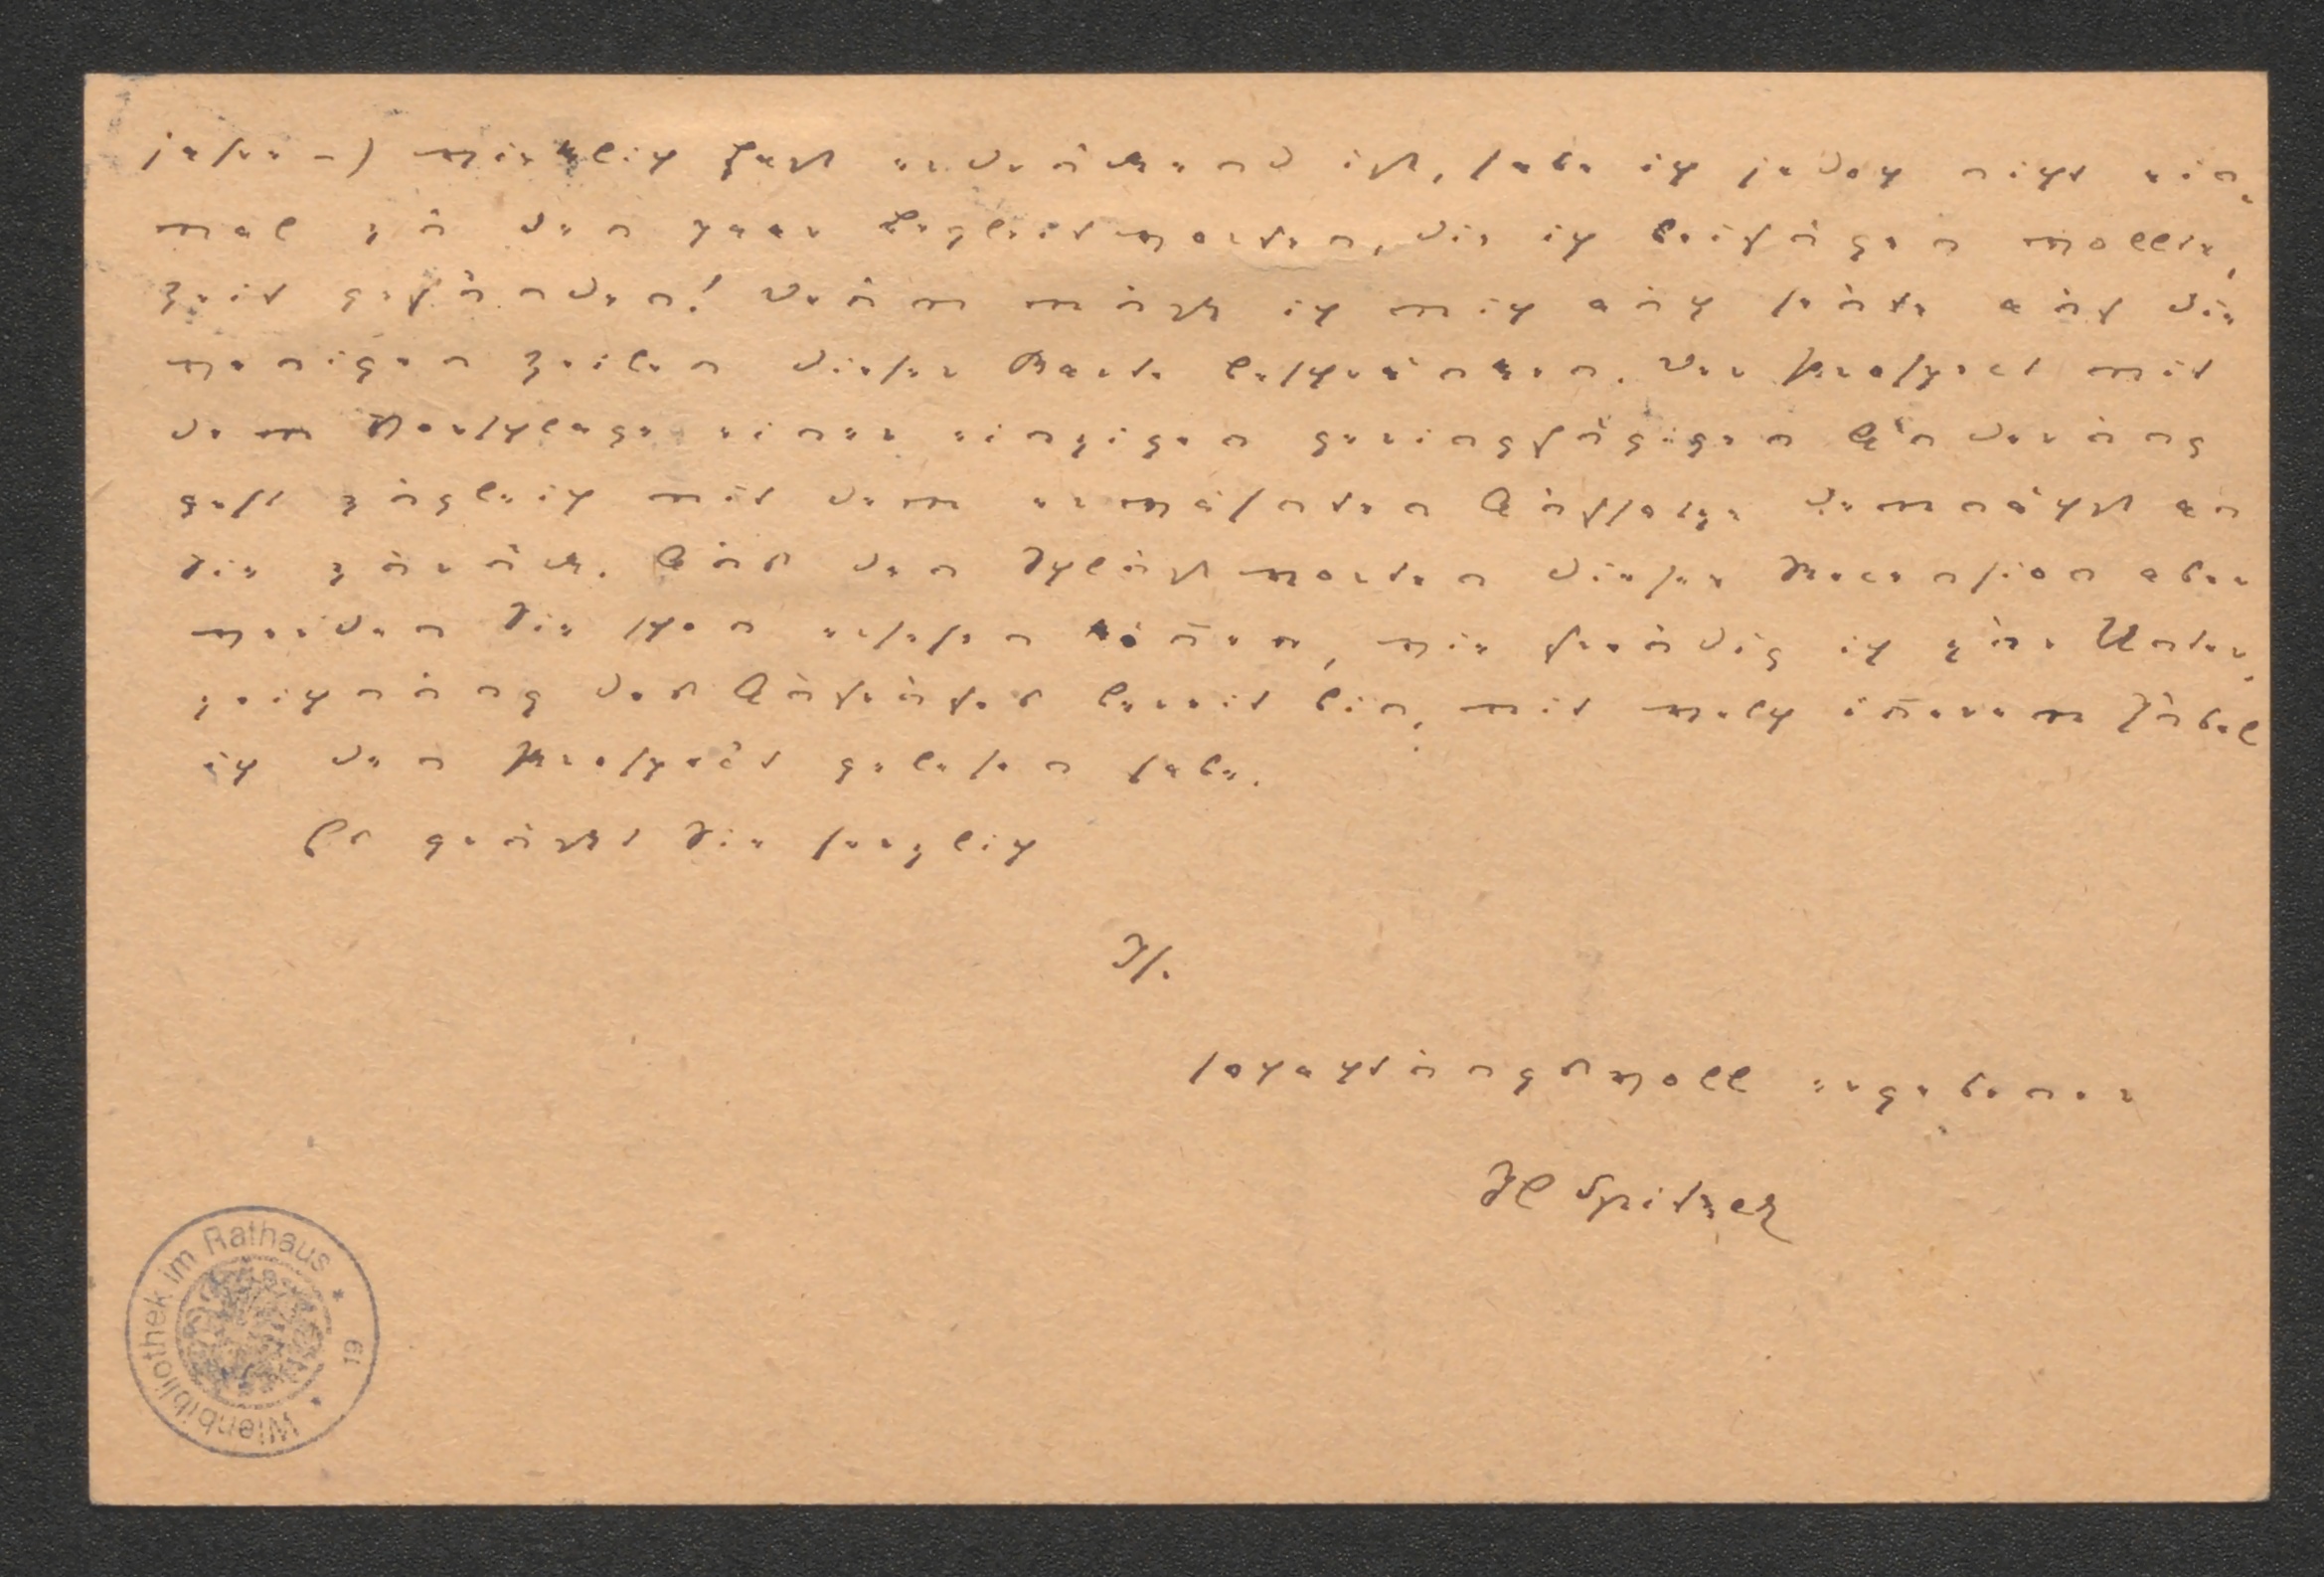 jahren) wirklich fast erdrückend ist, habe ich jedoch nicht ein-
mal zu den paar Begleitworten, die ich beifügen wollte,
Zeit gefunden! Drum muß ich mich auch heute auf die
wenigen Zeilen dieser Karte beschränken. Der Prospect mit
dem Vorschlage einer einzigen geringfügigen Änderung
geht zugleich mit dem erwähnten Aufsatze demnächst an
Sie zurück. Aus den Schlußworten dieser Recension aber
werden Sie schon ersehen können, wie freudig ich zur Unter-
zeichnung des Aufrufes bereit bin, mit welch innerem Jubel
ich den Prospect gelesen habe.
Es grüßt Sie herzlich
Ihr
hochachtungsvoll ergebener
H Spitzer
Wienbibliothek im Rathaus * 19 *